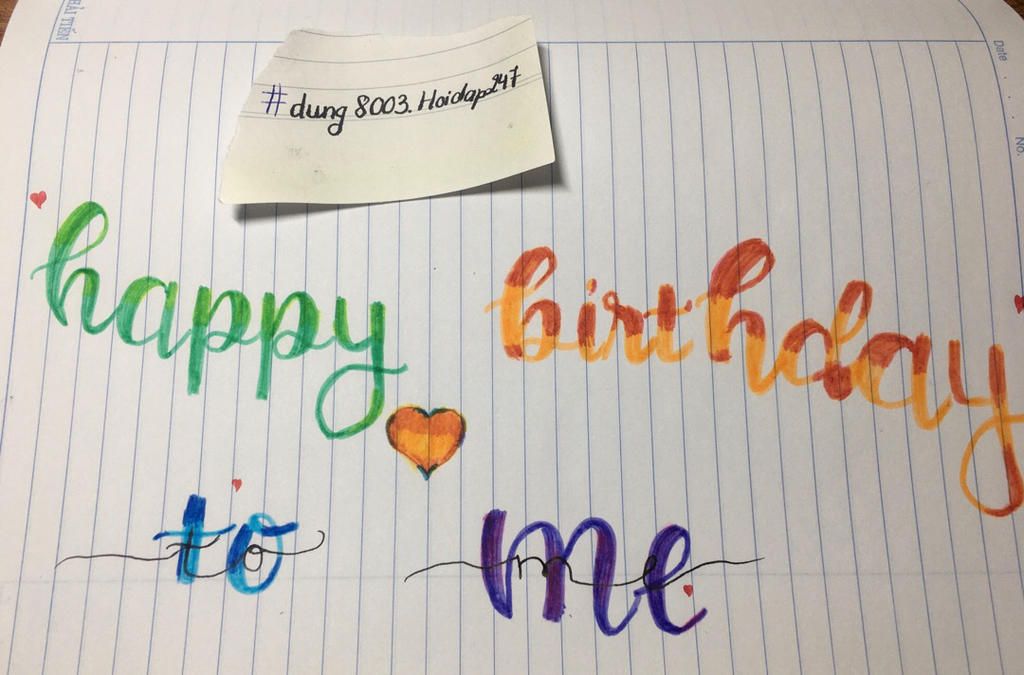 HẢI TIẾN
Date
No.
#dung 8003. Hoidap247
happy birthday
to me
to me